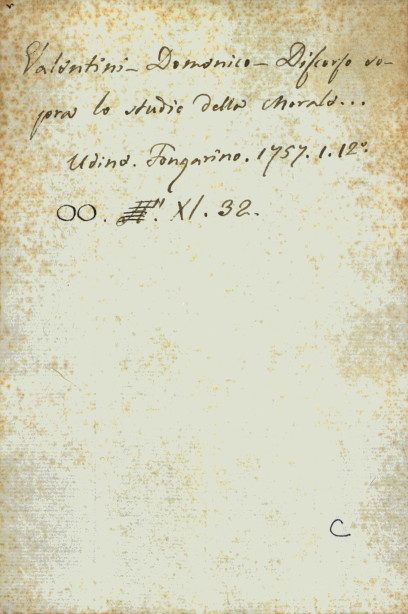 Valentini – Domenico – Discorso so-
pra lo studio della Morale...
Udine. Fongarino. 1757. 1. 12º.
OO. XI. 32.
C